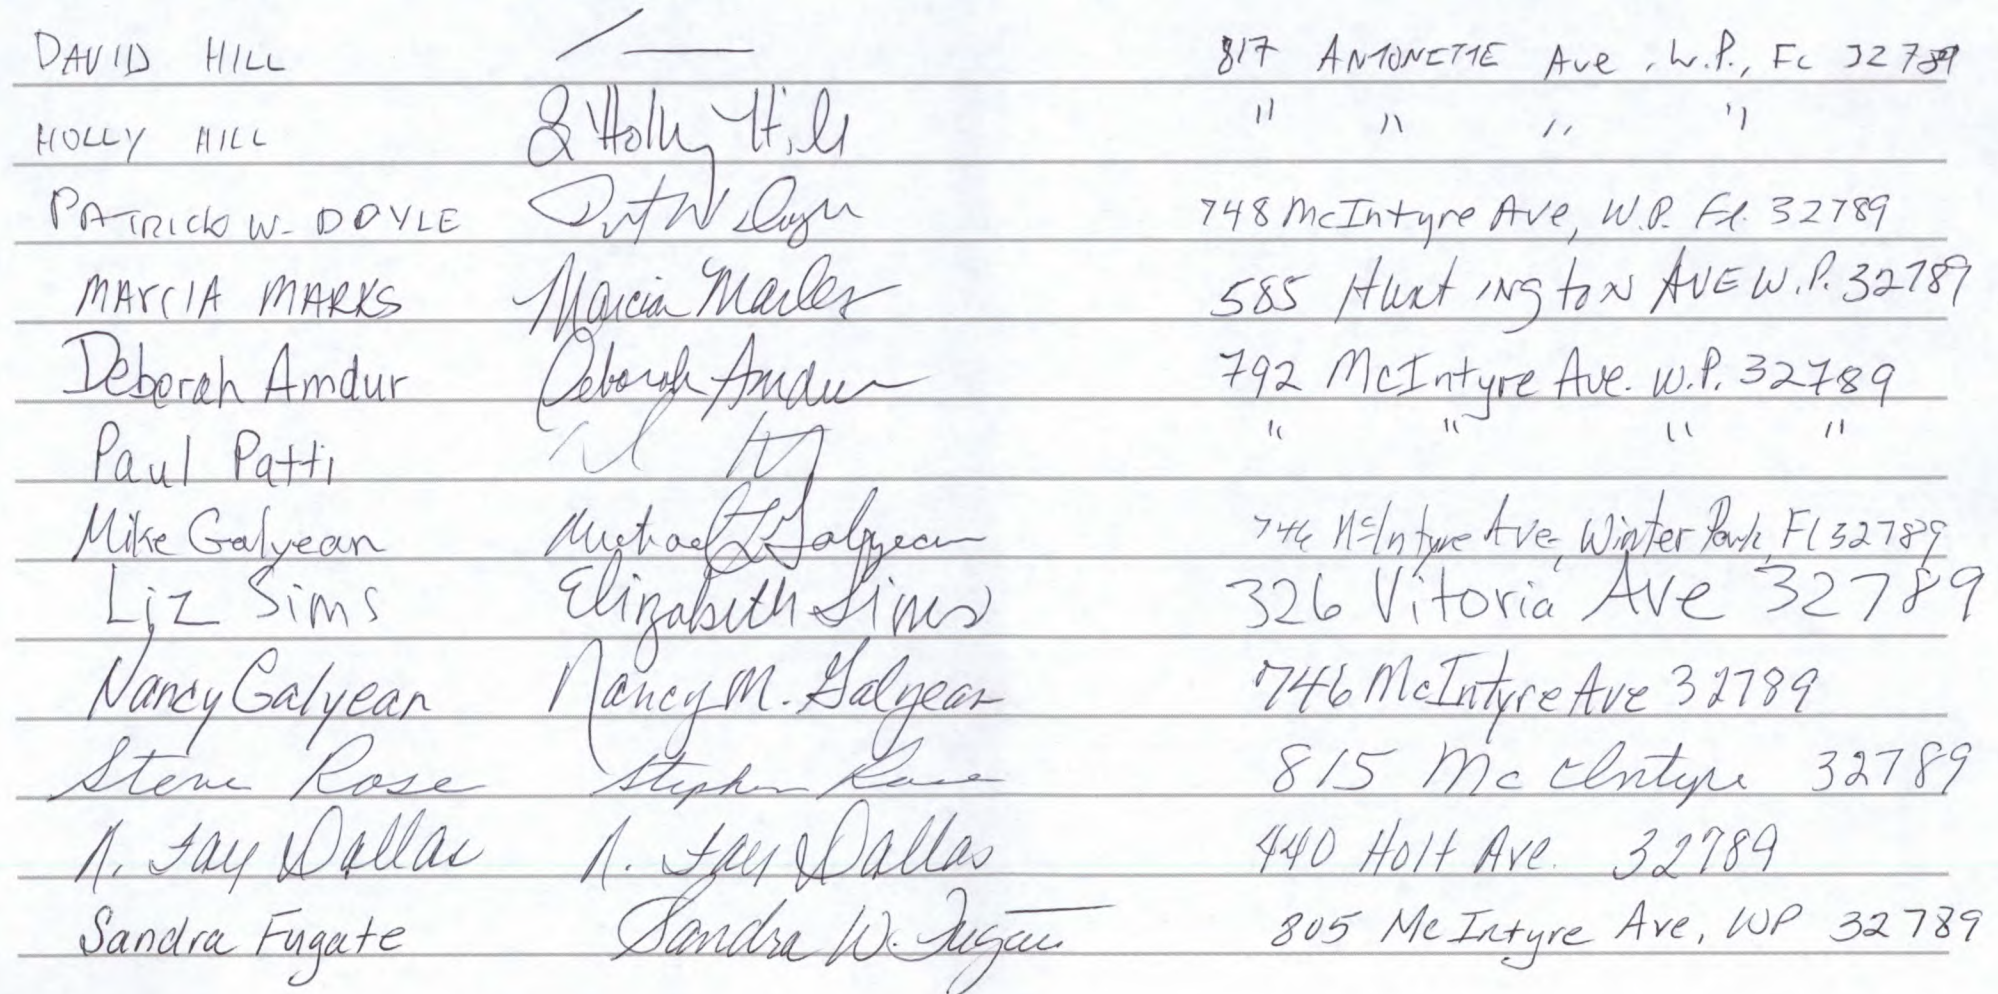 DAVID HILL 817 ANTONETTE Ave. W.P., FL 32789
HOLLY HILL & Holly Hill " " " "
PATRICK W. DOYLE 748 McIntyre Ave, W.P. Fl. 32789
MARCIA MARKS Marcia Marks 585 HuntINgtoN AVE W.P. 32789
Deborah Amdur Deborah Amdur 792 McIntyre Ave. W.P. 32789
Paul Patti " " " "
Mike Galyean Michael L Galyean 746 McIntyre Ave, Winter Park, Fl 32789
Liz Sims Elizabeth Sims 326 Vitoria Ave 32789
Nancy Galyean Nancy M. Galyean 746 McIntyre Ave 32789
Steve Rose Stephen Rose 815 McIntyre 32789
N. Jay Dallas N. Jay Dallas 440 Holt Ave. 32789
Sandra Fugate Sandra W. Fugate 805 McIntyre Ave, WP 32789